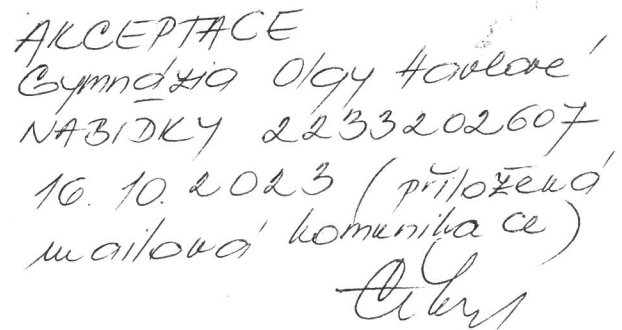 AKCEPTACE
Gymnázia Olgy Havlové
NABÍDKY 2233202607
16. 10. 2023 (přiložená
mailová komunikace)